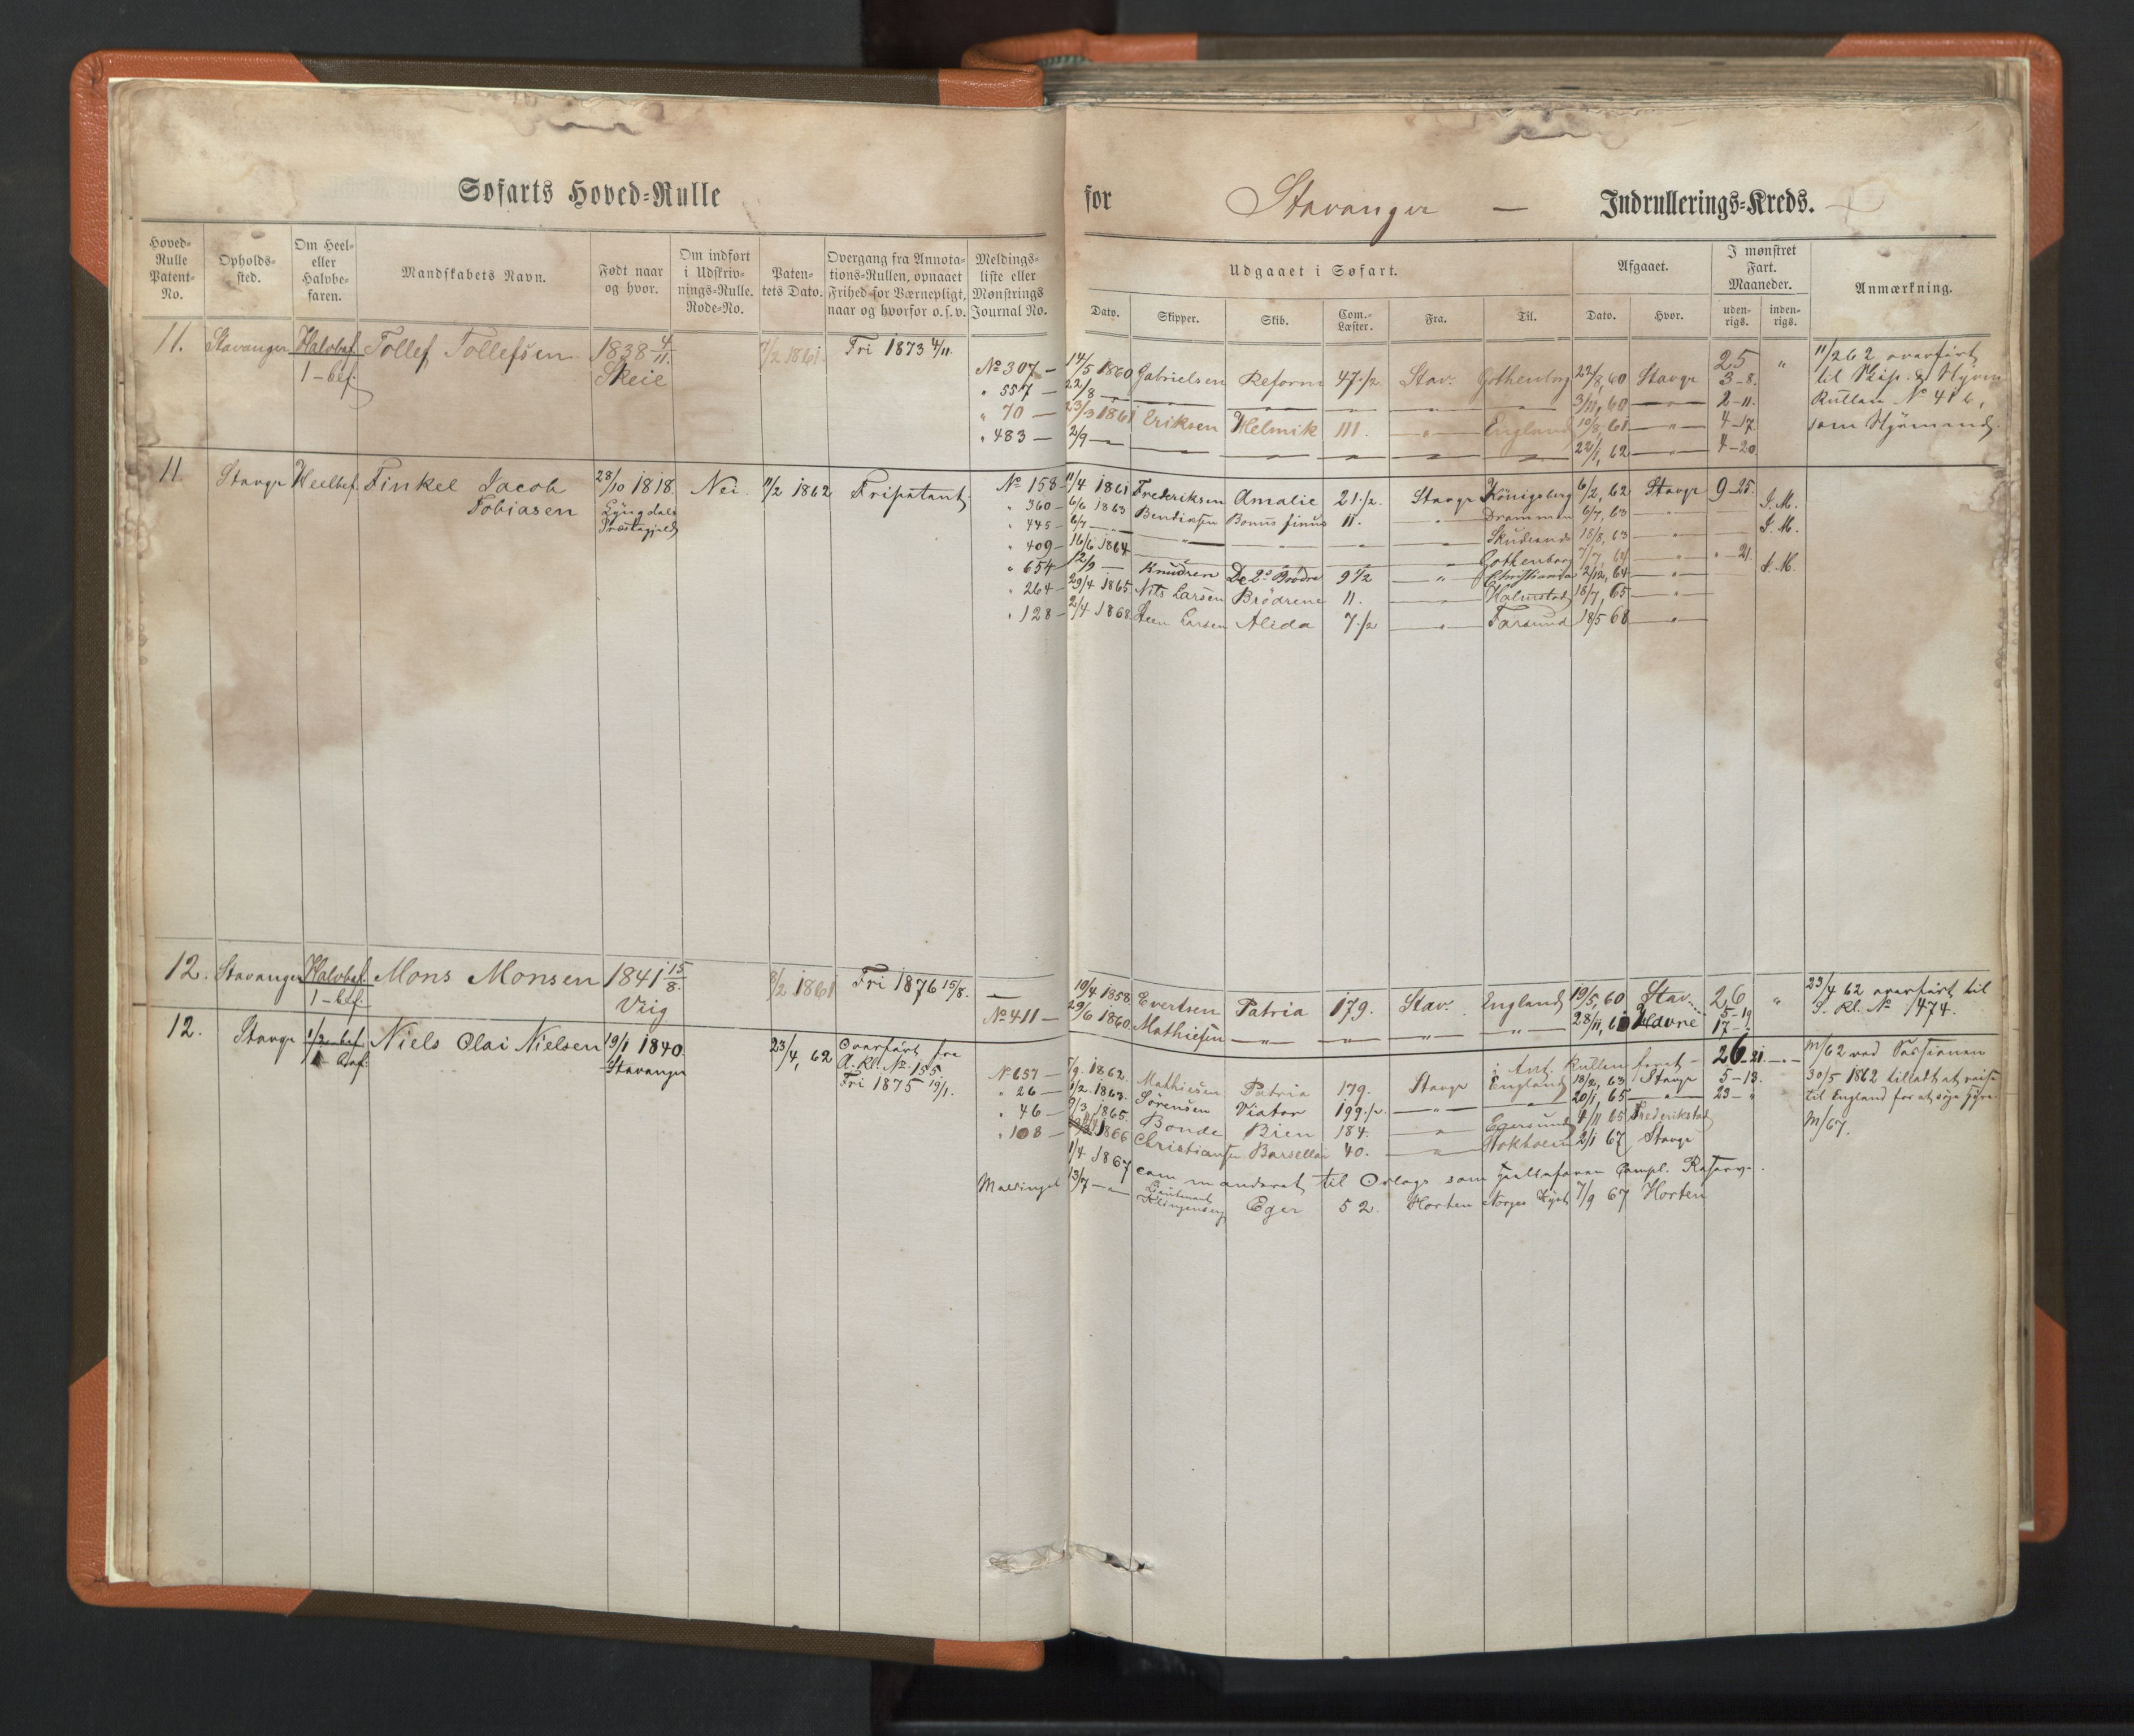 Søfarts Hoved-Rulle for Stavanger — Indrullerings-Kreds.
Hoved-Rulle Patent-No. Opholds-sted. Om Heel- eller Halvbe-faren. Mandskabets Navn. Født naar og hvor. Om indført i Udskriv-nings-Rulle. Rode-No. Paten-tets Dato. Overgang fra Annota-tions-Rullen, opnaaet Frihed for Værnepligt, naar og hvorfor o.s.v. Meldings-liste eller Mønstrings Journal No.
Udgaaet i Søfart. Afgaaet. I mønstret Fart. Maaneder. Anmærkning.
Dato. Skipper. Skib. Com.-Læster. Fra. Til. Dato. Hvor. uden-rigs. inden-rigs.
11. Stavanger Halvbef. Tollef Tollefsen 1838 4/11. 7/2 1861. Fri 1873 4/11.
1-bef. Skeie
No 307 - 14/5 1860 Gabrielsen Reform 47 1/2 Stav. Gothenborg 22/8, 60 Stavgr 25 " 11/2 62 overført
3-8. til Skip. & Styrm
" 557 - 22/8 — 3/11, 60 — 2-11. Rullen No 416,
" 70 — 23/3 1861 Eriksen Helmik 111. — " — England 10/8, 61 — " — 4-17. som Styrmand.
" 483 — 2/9 — 22/1, 62 — 4-20.
11. Stavgr Heelbef. Finkel Jacob 28/10 1818. Nei. 11/2 1862 Fripatent.
Tobiasen Lyngdals Præstegjeld
No 158 - 11/4 1861 Frederiksen Amalie 21 1/2 Stavgr Königsberg 6/2, 62 Stavgr 9-25.
" 360 - 6/6 1863 Bendixsen Bonus finus 11. " Drammen 6/7, 63 — " — I. M.
" 445 - 6/7 — Skudesnes 18/8, 63 — " — I. M.
" 409 - 16/6 1864 — Gothenborg 7/7, 64 — " — " - 21.
" 654 - 12/9 — Knudsen De 2de Brødre 9 1/2 — " — Christiania 2/12, 64 — " — I. M.
" 264 - 29/4 1865. Nils Larsen Brødrene 11. — Halmstad 18/7, 65 — " —
" 128 - 2/4 1868. Larsen Alida 7 1/2 — " — Farsund 18/5 68 — " —
12. Stavanger Halvbef. Mons Monsen 1841 15/8. 8/2 1861 Fri 1876 15/8.
1-bef. Viig
— 10/4 1858 Evertsen Patria 179. Stav. England 19/5, 60 Stav. 26 " 23/4 62 overført til
5-19.
No 411 — 29/6 1860. Mathiesen — " — 28/11, 60 Havre 17- S. Rl. No 1474.
12. Stavgr 1/2 bef. Niels Olai Nielsen 19/1 1840. 23/4, 62 Overført fra
1 bef. Stavanger A. Rl. No 155.
Fri 1875 19/1.
i Ant. Rullen 26-21 — " —
No 637 — 5/9. 1862. Mathiesen Patria 179. Stavgr England 13/2, 63 Stavgr 5-13. 30/5 1862 tilladt at reise
" 26 — 1/2. 1863. Sørensen Viator 199 1/2. — " — 20/1, 65 — " — 23- " til England for at søge Hyre.
" 46 — 9/3 1865. Bonde Bien 184. — " — Egersund 4/11 65 Frederikstad
" 108 — 1866 Christiansen Barsellon 40. — " — Stokholm 2/1 67 Stavgr M/67.
1/4 1867 commanderet til Orlogs som Compl. Reserve.
13/7 — " — Lieutenant Klingenberg Eger 52. Horten Norges Kyst 7/9 67 Horten